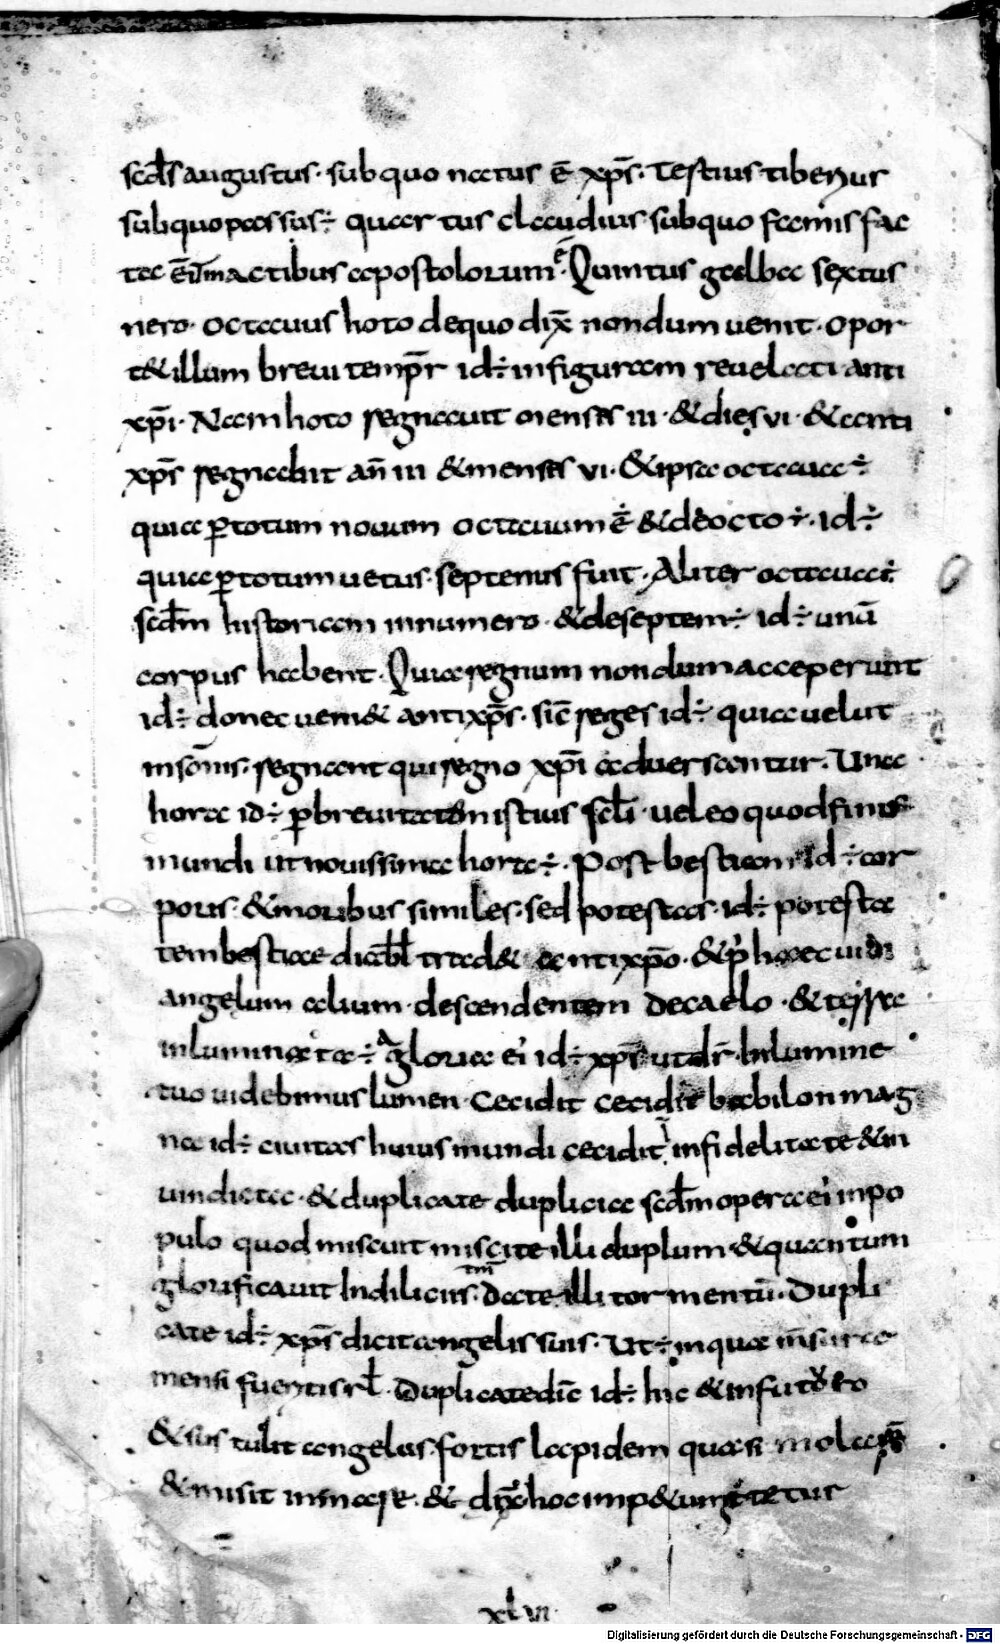 scds augustus · sub quo natus ē xp̄s · Testius tiberius
sub quo passus ÷ quartus claudius · sub quo famis fac
ta ē ūm actibus apostolorum · Quintus galba sextus
nero · octauus hoto de quo dix̄ nondum uenit · opor
t& illum breui temp̄r id÷ in figuram reuelati anti
xp̄i · Nam hoto regnauit menses iii · & dies vi · & anti
xp̄s regnabit an̄ iii & menses vi · & ipsa octaua ÷
quia p totum nouum octauum ē & de octo ÷ · id÷
quia p totum uetus · septenus fuit · Aliter octaua ÷
scdm historiam in numero · & de septem ÷ id÷ unū
corpus habent · Quia regnum nondum acceperunt
id÷ donec ueni& antixp̄s · sic̄ reges id÷ quia uelut
in som̄is · regnant qui regno xp̄i aduersantur · Una
hora id÷ p breuitatem istius scl̄i · uel eo quod finis
mundi ut nouissima hora ÷ · Post bestiam id÷ cor
poris · & moribus similes · sed potestas · id÷ potesta
tem bestiae diabl̄ trad& antixp̄o · & p haec uidi
angelum alium · descendentem de caelo · & terra
inluminata ÷ a gloria ei id÷ xp̄i ut dr̄ · In lumine
tuo uidebimus lumen · Cecidit cecidit babilon mag
na id÷ ciuitas huius mundi cecidit in fidelitate & in
uindicta · & duplicate duplicia scdm opera ei in po
pulo quod miscuit miscite illi duplum · & quantum
glorificauit In diliciis tm̄ date illi tormentū · Dupli
cate id÷ xp̄s dicit angelis suis · Ut ÷ in qua m̄sura
mensi fueritis rl̄ · Duplicate dic̄ id÷ hic & in futuro
& sustulit angelus · fortis lapidem quasi molarē
& misit in mare · & dix̄ hoc imp&u
xlvi
Digitalisierung gefördert durch die Deutsche Forschungsgemeinschaft - DFG